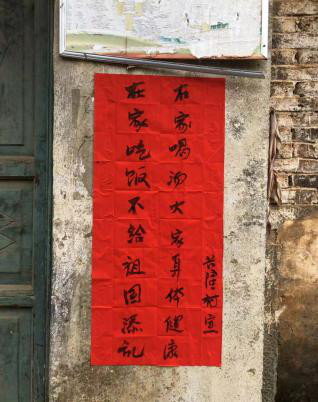 在家喝汤大家身体健康
在家吃饭不给祖国添乱
长湴村宣